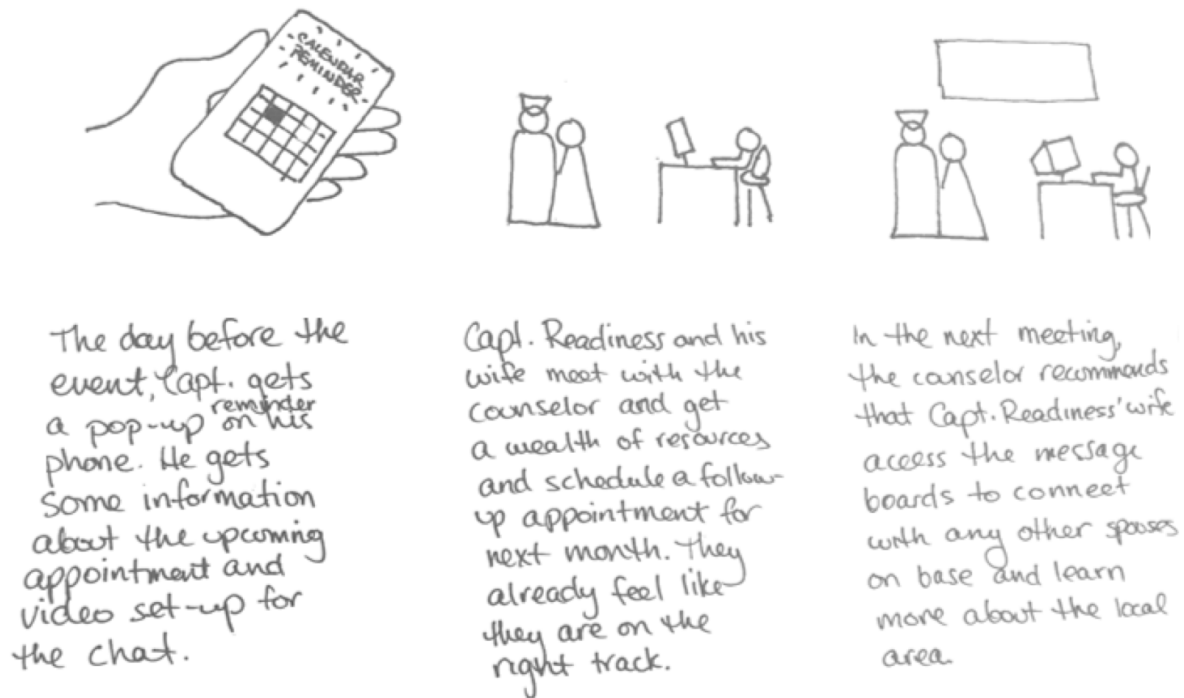 CALENDAR
REMINDER
The day before the
event, Capt. gets
a pop-up reminder on his
phone. He gets
some information
about the upcoming
appointment and
video set-up for
the chat.
Capt. Readiness and his
wife meet with the
counselor and get
a wealth of resources
and schedule a follow-
up appointment for
next month. They
already feel like
they are on the
right track.
In the next meeting,
the counselor recommends
that Capt. Readiness' wife
access the message
boards to connect
with any other spouses
on base and learn
more about the local
area.